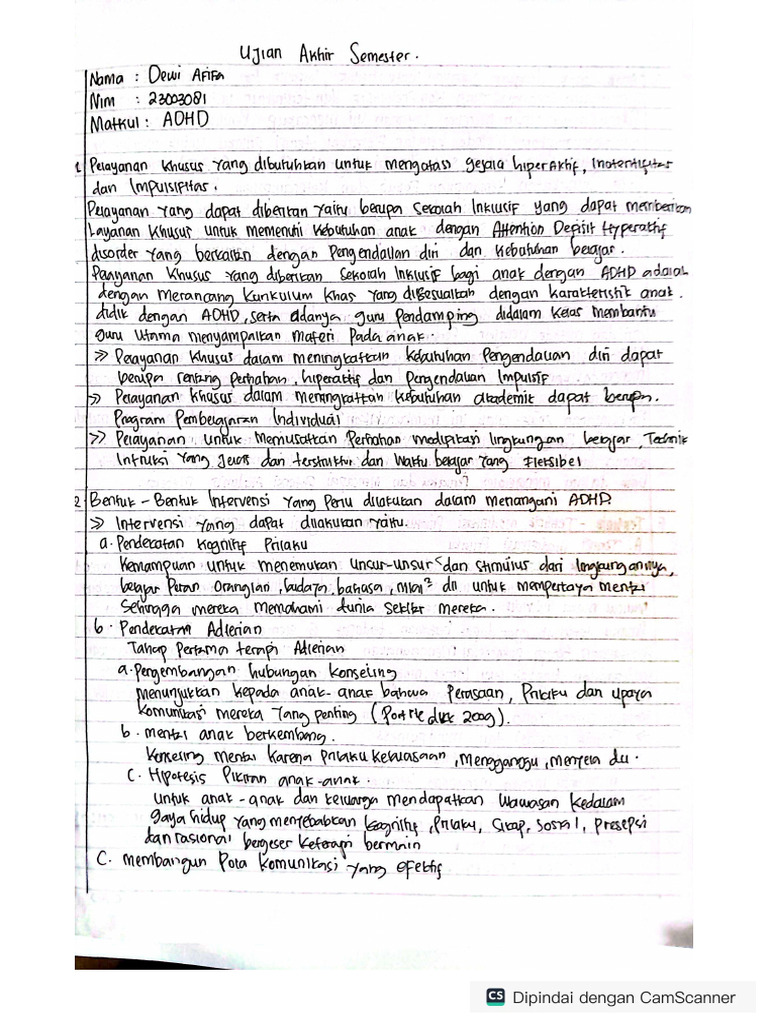 Ujian Akhir Semester.
Nama : Dewi Afifa
Nim : 23003081
Matkul : ADHD
1. Pelayanan Khusus Yang dibutuhkan untuk mengatasi gejala hiperAktif, inatentifitas
dan Impulsifitas.
Pelayanan Yang dapat diberikan Yaitu berupa Sekolah Inklusif Yang dapat memberikan
Layanan Khusus untuk memenuhi Kebutuhan anak dengan Attention Defisit Hyperaktif
disorder Yang berkaitan dengan Pengendalian diri dan Kebutuhan belajar.
Pelayanan Khusus Yang diberikan Sekolah Inklusif bagi anak dengan ADHD adalah
dengan Merancang Kurikulum Khas Yang diSesuaikan dengan Karakteristik anak
didik dengan ADHD, serta adanya guru Pendamping didalam Kelas Membantu
guru Utama menyampaikan Materi Pada anak.
>> Pelayanan Khusus dalam meningkatkan Kebutuhan Pengendalian diri dapat
berupa rentang Perhatian, hiperaktif dan Pengendalian Impulsif
>> Pelayanan Khusus dalam Meningkatkan Kebutuhan akademik dapat berupa.
Program Pembelajaran Individual
>> Pelayanan untuk Memusatkan Perhatian Modifikasi lingkungan belajar, Teknik
Intruksi Yang Jelas dan terstruktur dan Waktu belajar Yang Fleksibel
2. Bentuk - Bentuk Intervensi Yang Perlu dilakukan dalam menangani ADHD.
>> Intervensi Yang dapat dilakukan Yaitu.
a. Pendekatan Kognitif Prilaku
Kemampuan untuk menemukan Uncur-unsur dan stimulus dari lingkungannya,
belajar Peran Oranglain, budaya, bahasa, nilai² dll untuk mempertaya mental
Sehingga mereka Memahami dunia Sekitar mereka.
b. Pendekatan Adlerian
Tahap Pertama terapi Adlerian
a. Pengembangan hubungan Konseling
Menunjukkan kepada anak-anak bahwa Perasaan, Prilaku dan upaya
Komunikasi mereka Yang penting (Portrie dkk 2009).
b. mental anak berkembang.
Konseling mental Karena Prilaku Kekuasaan, Mengganggu, Menyela dll.
C. Hipotesis Pikiran anak-anak.
untuk anak-anak dan keluarga mendapatkan Wawasan Kedalam
gaya hidup Yang menyebabkan Kognitif, Prilaku, Sikap, Sosial, Presepsi
dan rasional bergeser Keterapi bermain
C. Membangun Pola Komunikasi Yang efektif
CS Dipindai dengan CamScanner